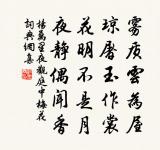 霧質雲為屋
瓊膚玉作裳
花明不是月
夜靜偶聞香
楊萬里夜觀庭中梅花
詞典網集